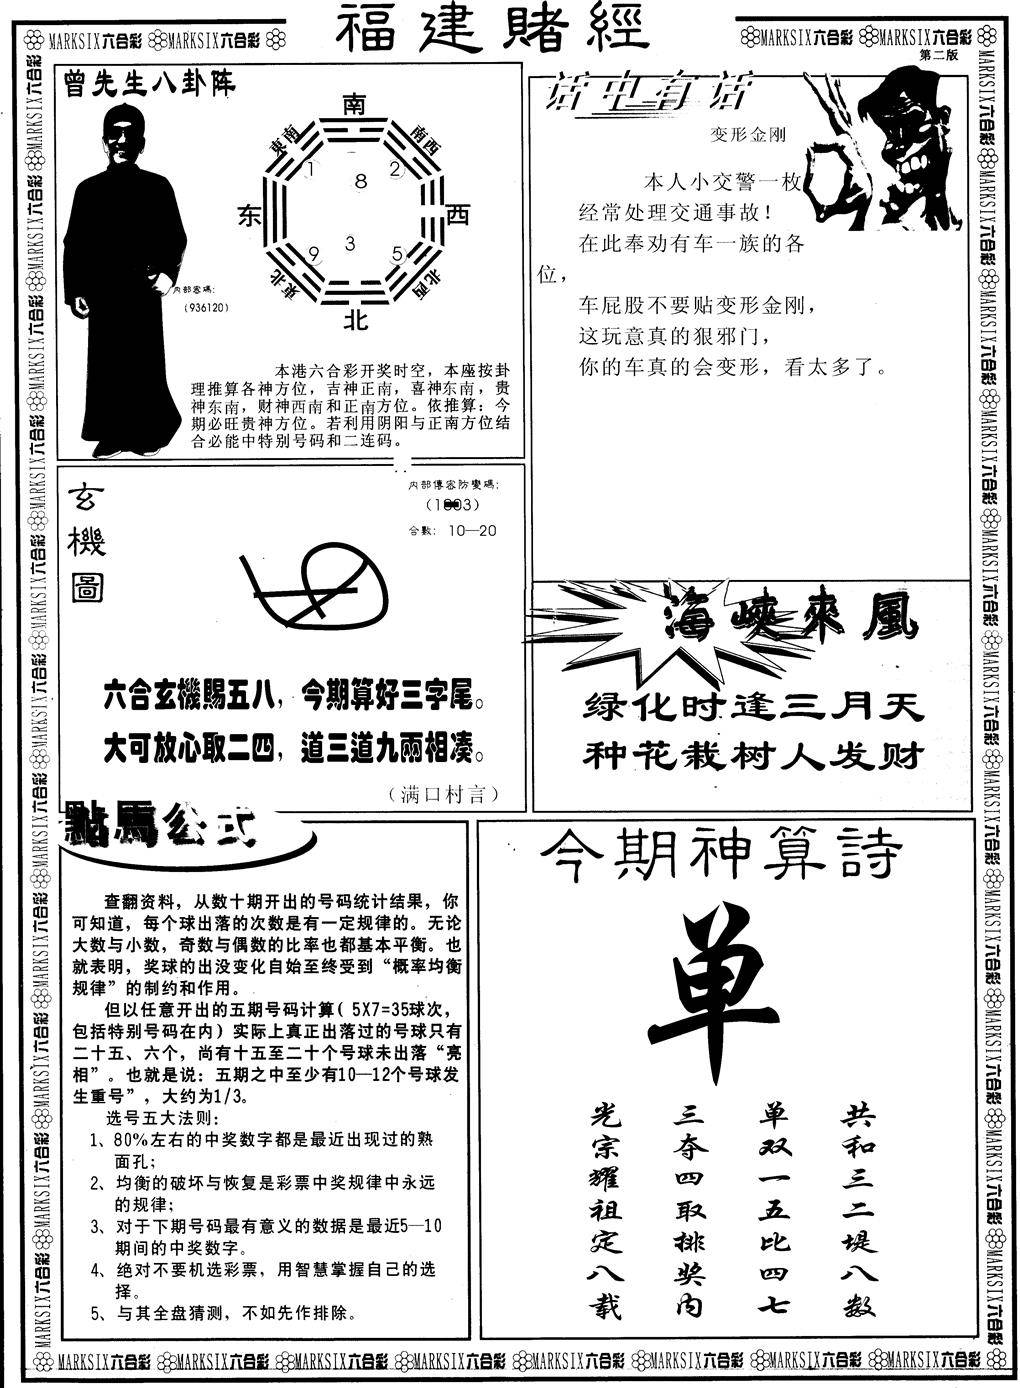 福建賭經
MARKSIX六合彩 MARKSIX六合彩
MARKSIX六合彩 MARKSIX六合彩
第二版
曾先生八卦阵
南
東南
南西
1
2
8
东
西
9
3
5
東北
北西
北
内部密碼：
（936120）
本港六合彩开奖时空，本座按卦
理推算各神方位，吉神正南，喜神东南，贵
神东南，财神西南和正南方位。依推算：今
期必旺贵神方位。若利用阴阳与正南方位结
合必能中特别号码和二连码。
话中有话
变形金刚
本人小交警一枚
经常处理交通事故！
在此奉劝有车一族的各
位，
车屁股不要贴变形金刚，
这玩意真的狠邪门，
你的车真的会变形，看太多了。
玄機圖
内部傳密防變碼：
合數： 10—20
六合玄機賜五八，今期算好三字尾。
大可放心取二四，道三道九兩相凑。
（满口村言）
海峽來風
绿化时逢三月天
种花栽树人发财
點馬公式
查翻资料，从数十期开出的号码统计结果，你
可知道，每个球出落的次数是有一定规律的。无论
大数与小数，奇数与偶数的比率也都基本平衡。也
就表明，奖球的出没变化自始至终受到“概率均衡
规律”的制约和作用。
但以任意开出的五期号码计算（5X7=35球次，
包括特别号码在内）实际上真正出落过的号球只有
二十五、六个，尚有十五至二十个号球未出落“亮
相”。也就是说：五期之中至少有10—12个号球发
生重号”，大约为1/3。
选号五大法则：
1、80%左右的中奖数字都是最近出现过的熟
面孔；
2、均衡的破坏与恢复是彩票中奖规律中永远
的规律；
3、对于下期号码最有意义的数据是最近5—10
期间的中奖数字。
4、绝对不要机选彩票，用智慧掌握自己的选
择。
5、与其全盘猜测，不如先作排除。
今期神算詩
单
共和三二堤八数
单双一五比四七
三夺四取排奖内
光宗耀祖定八载
MARKSIX六合彩 MARKSIX六合彩 MARKSIX六合彩 MARKSIX六合彩 MARKSIX六合彩 MARKSIX六合彩 MARKSIX六合彩 MARKSIX六合彩